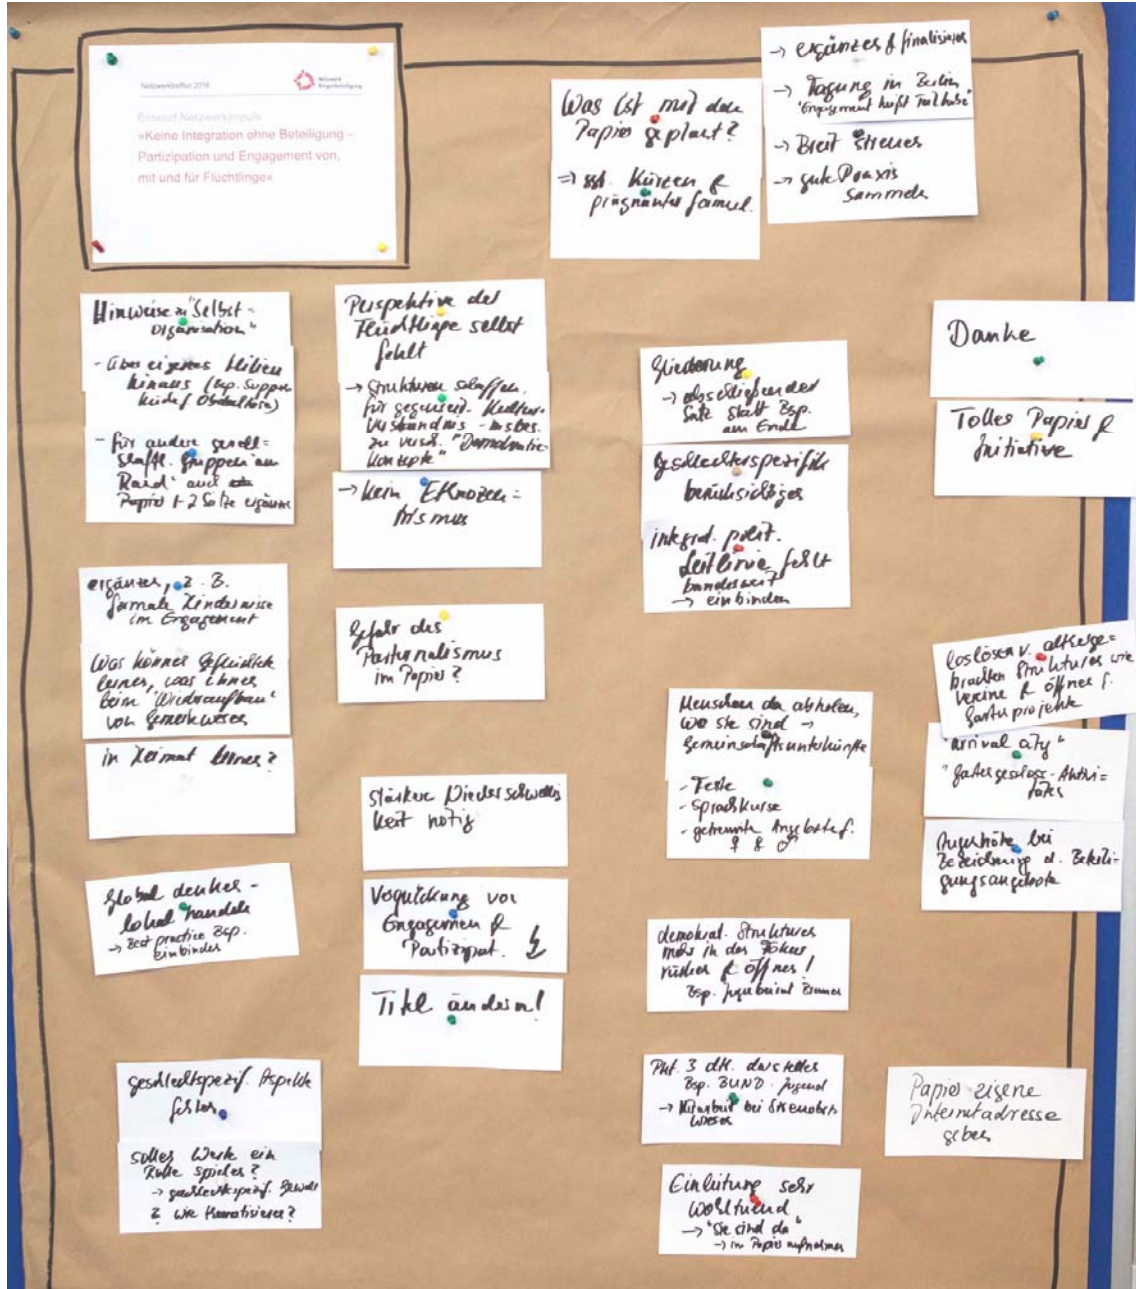 Netzwerktreffen 2016
Netzwerk
Bürgerbeteiligung
Entwurf Netzwerkimpuls
»Keine Integration ohne Beteiligung –
Partizipation und Engagement von,
mit und für Flüchtlinge«
Was ist mit dem
Papier geplant?
=> sst. Kürzen &
prägnanter formul.
→ ergänzen & finalisieren
→ Tagung in Berlin
"Engagement heißt Teilhabe"
→ Breit streuen
→ gute Praxis
sammeln
Hinweise zu "Selbst=
organisation"
- über eigenes Milieu
hinaus (Bsp. Suppen
- für andere gesell=
schaftl. Gruppen 'am
Rand' auch
Papier 1-2 Sätze ergänzen
Perspektive der
Flüchtlinge selbst
fehlt
→ Strukturen schaffen,
für gegenseit. Kultur-
verständnis - insbes.
zu versch. "Demokratie
Konzepte"
→ kein Ethnozen=
trismus
Gliederung
→ abschließender
Satz statt Bsp.
am Ende
Geschlechterspezifik
berücksichtigen
integrat. polit.
Leitlinie fehlt
bundesweit
→ einbinden
Danke
Tolles Papier &
Initiative
ergänzen, z. B.
formale Hindernisse
im Engagement
Was können Geflüchtete
lernen, was ihnen
beim 'Wiederaufbau'
von Gemeinwesen
in Heimat lernen?
Gefahr des
Paternalismus
im Papier?
Menschen da abholen,
wo sie sind →
Gemeinschaftsunterkünfte
- Feste
- Sprachkurse
- getrennte Angebote f.
♀ & ♂
loslösen v. altherge=
brachten Strukturen wie
Vereine & öffnen f.
Gartenprojekte
"arrival city"
Augenhöhe bei
Bezeichnung d. Beteili-
gungsangebote
stärkere Niederschwellig
keit nötig
Global denken -
lokal handeln
→ Best practice Bsp.
einbinden
Verquickung von
Engagement &
Partizipat.
Titel ändern!
demokrat. Strukturen
mehr in den Fokus
rücken & öffnen!
Bsp. Jugendbeirat Bremen
geschlechtspezif. Aspekte
fehlen
sollen Werte ein
Rolle spielen?
→ geschlechtspezif. Gewalt
? wie thematisieren?
Pkt. 3 dtl. darstellen
Bsp. BUND Jugend
→ Mitarbeit bei Streuobst
wiesen
Papier eigene
Internetadresse
geben
Einleitung sehr
wohltuend
→ "sie sind da"
→ in Papier aufnehmen